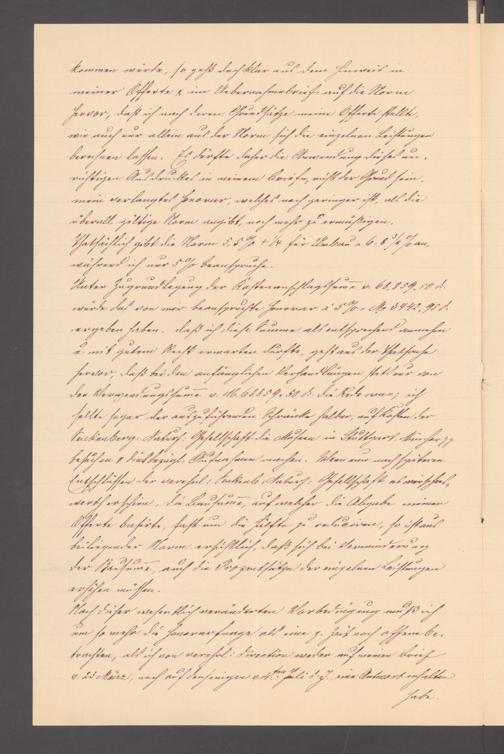 kommen würde, so geht doch klar aus dem Hinweis in
meiner Offerte & im Uebernahmsbrief auf die Norm
hervor, daß ich nach deren Grundsätze meine Offerte stellte,
wie auch nur allein aus der Norm sich die einzelnen Leistungen
berechnen lassen. Es dürfte daher die Anwendung dieses un-
richtigen Ausdruckes in meinem Briefe, nicht der Grund sein,
mein verlangtes Honorar, welches noch geringer ist, als die
überall gültige Norm angibt, noch mehr zu ermäßigen.
Thatsächlich gibt die Norm à 5 % + ¼ für Umbau = 6.8 % an,
während ich nur 5 % beanspruche.
Unter Zugrundlegung der Kostenanschlagssumme v. 68,859.50 d.
würde das von mir beanspruchte Honorar à 5 % = M 3442,95 d.
ergeben haben. Daß ich diese Summe als entsprechend annehmen
u. mit gutem Recht erwarten durfte, geht aus der Thatsache
hervor, daß bei den anfänglichen Verhandlungen stets nur von
der Verwendungssumme v. M. 68859.50 d. die Rede war; ich
sollte sogar der auszuführenden Schränke halber, auf Kosten der
Senkenberg. Naturf. Gesellschaft die Museen in Stuttgart, München
besuchen & diesbezügl. Aufnahmen machen. Wenn nun nach späteren
Entschlüssen der verehrl. Senkenb. Naturf. Gesellschaft es wünschens-
werth erschien, die Bausumme, auf welcher die Abgabe meiner
Offerte basirte, fast um die Hälfte zu reduciren, so ist aus
beiliegender Norm ersichtlich, daß sich bei Verminderung
der Bausumme, auch die Prozentsätze der einzelnen Leistungen
erhöhen müssen.
Nach dieser wesentlich veränderten Vorbedingung muß ich
um so mehr die Honorarfrage als eine z. Zeit noch offene be-
trachten, als ich von verehrl. Direction weder auf meinen Brief
v. März, noch auf denjenigen v. 4ten Juli d. J. eine Antwort erhalten
habe.